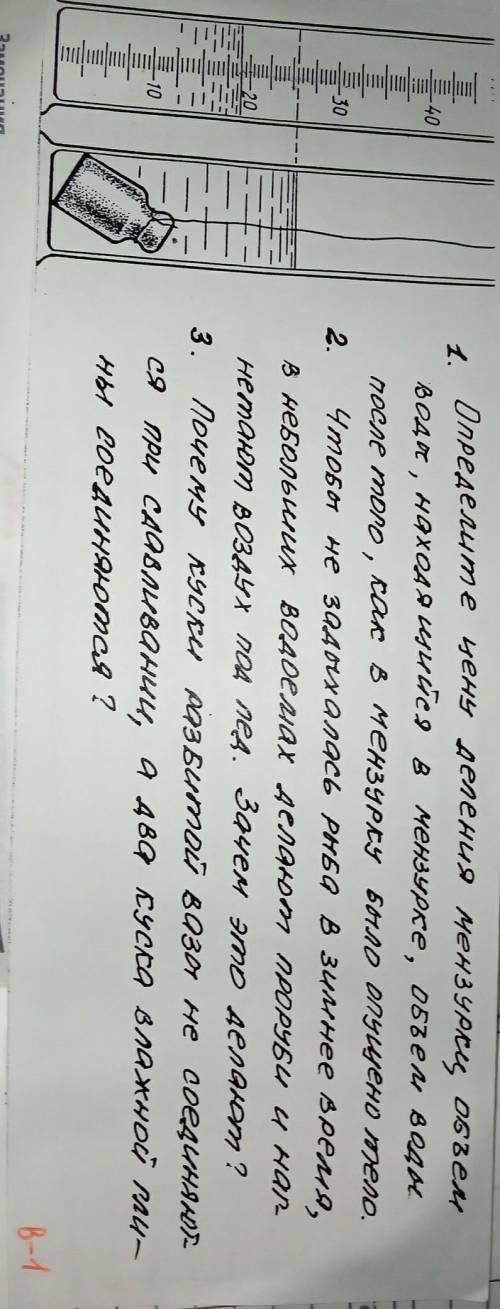 40
30
20
10
1. Определите цену деления мензурки, объем
воды, находящийся в мензурке, объем воды
после того, как в мензурку было опущено тело.
2. Чтобы не задыхалась рыба в зимнее время,
в небольших водоемах делают проруби и наг-
нетают воздух под лед. Зачем это делают?
3. Почему куски разбитой вазы не соединяют-
ся при сдавливании, а два куска влажной гли-
ны соединяются?
В-1